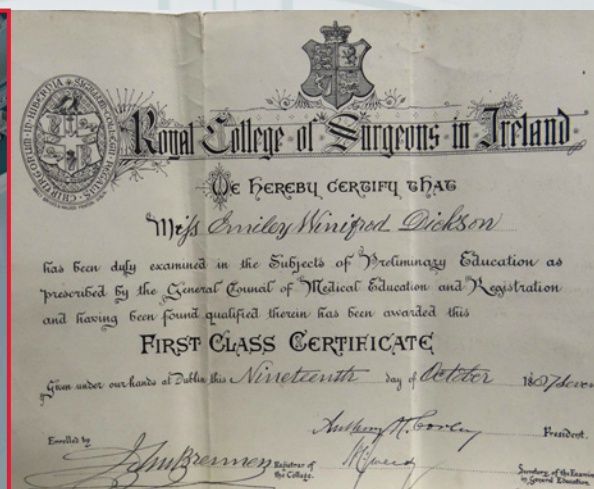 Royal College of Surgeons in Ireland
We hereby certify that
Miss Emiley Winifred Dickson
has been duly examined in the Subjects of Preliminary Education as
prescribed by the General Council of Medical Education and Registration
and having been found qualified therein has been awarded this
First Class Certificate
Given under our hands at Dublin this Nineteenth day of October 1887
Anthony H. Corley President.
Enrolled by
John Brennen Registrar of
the College.
Secretary of the
in General Education.